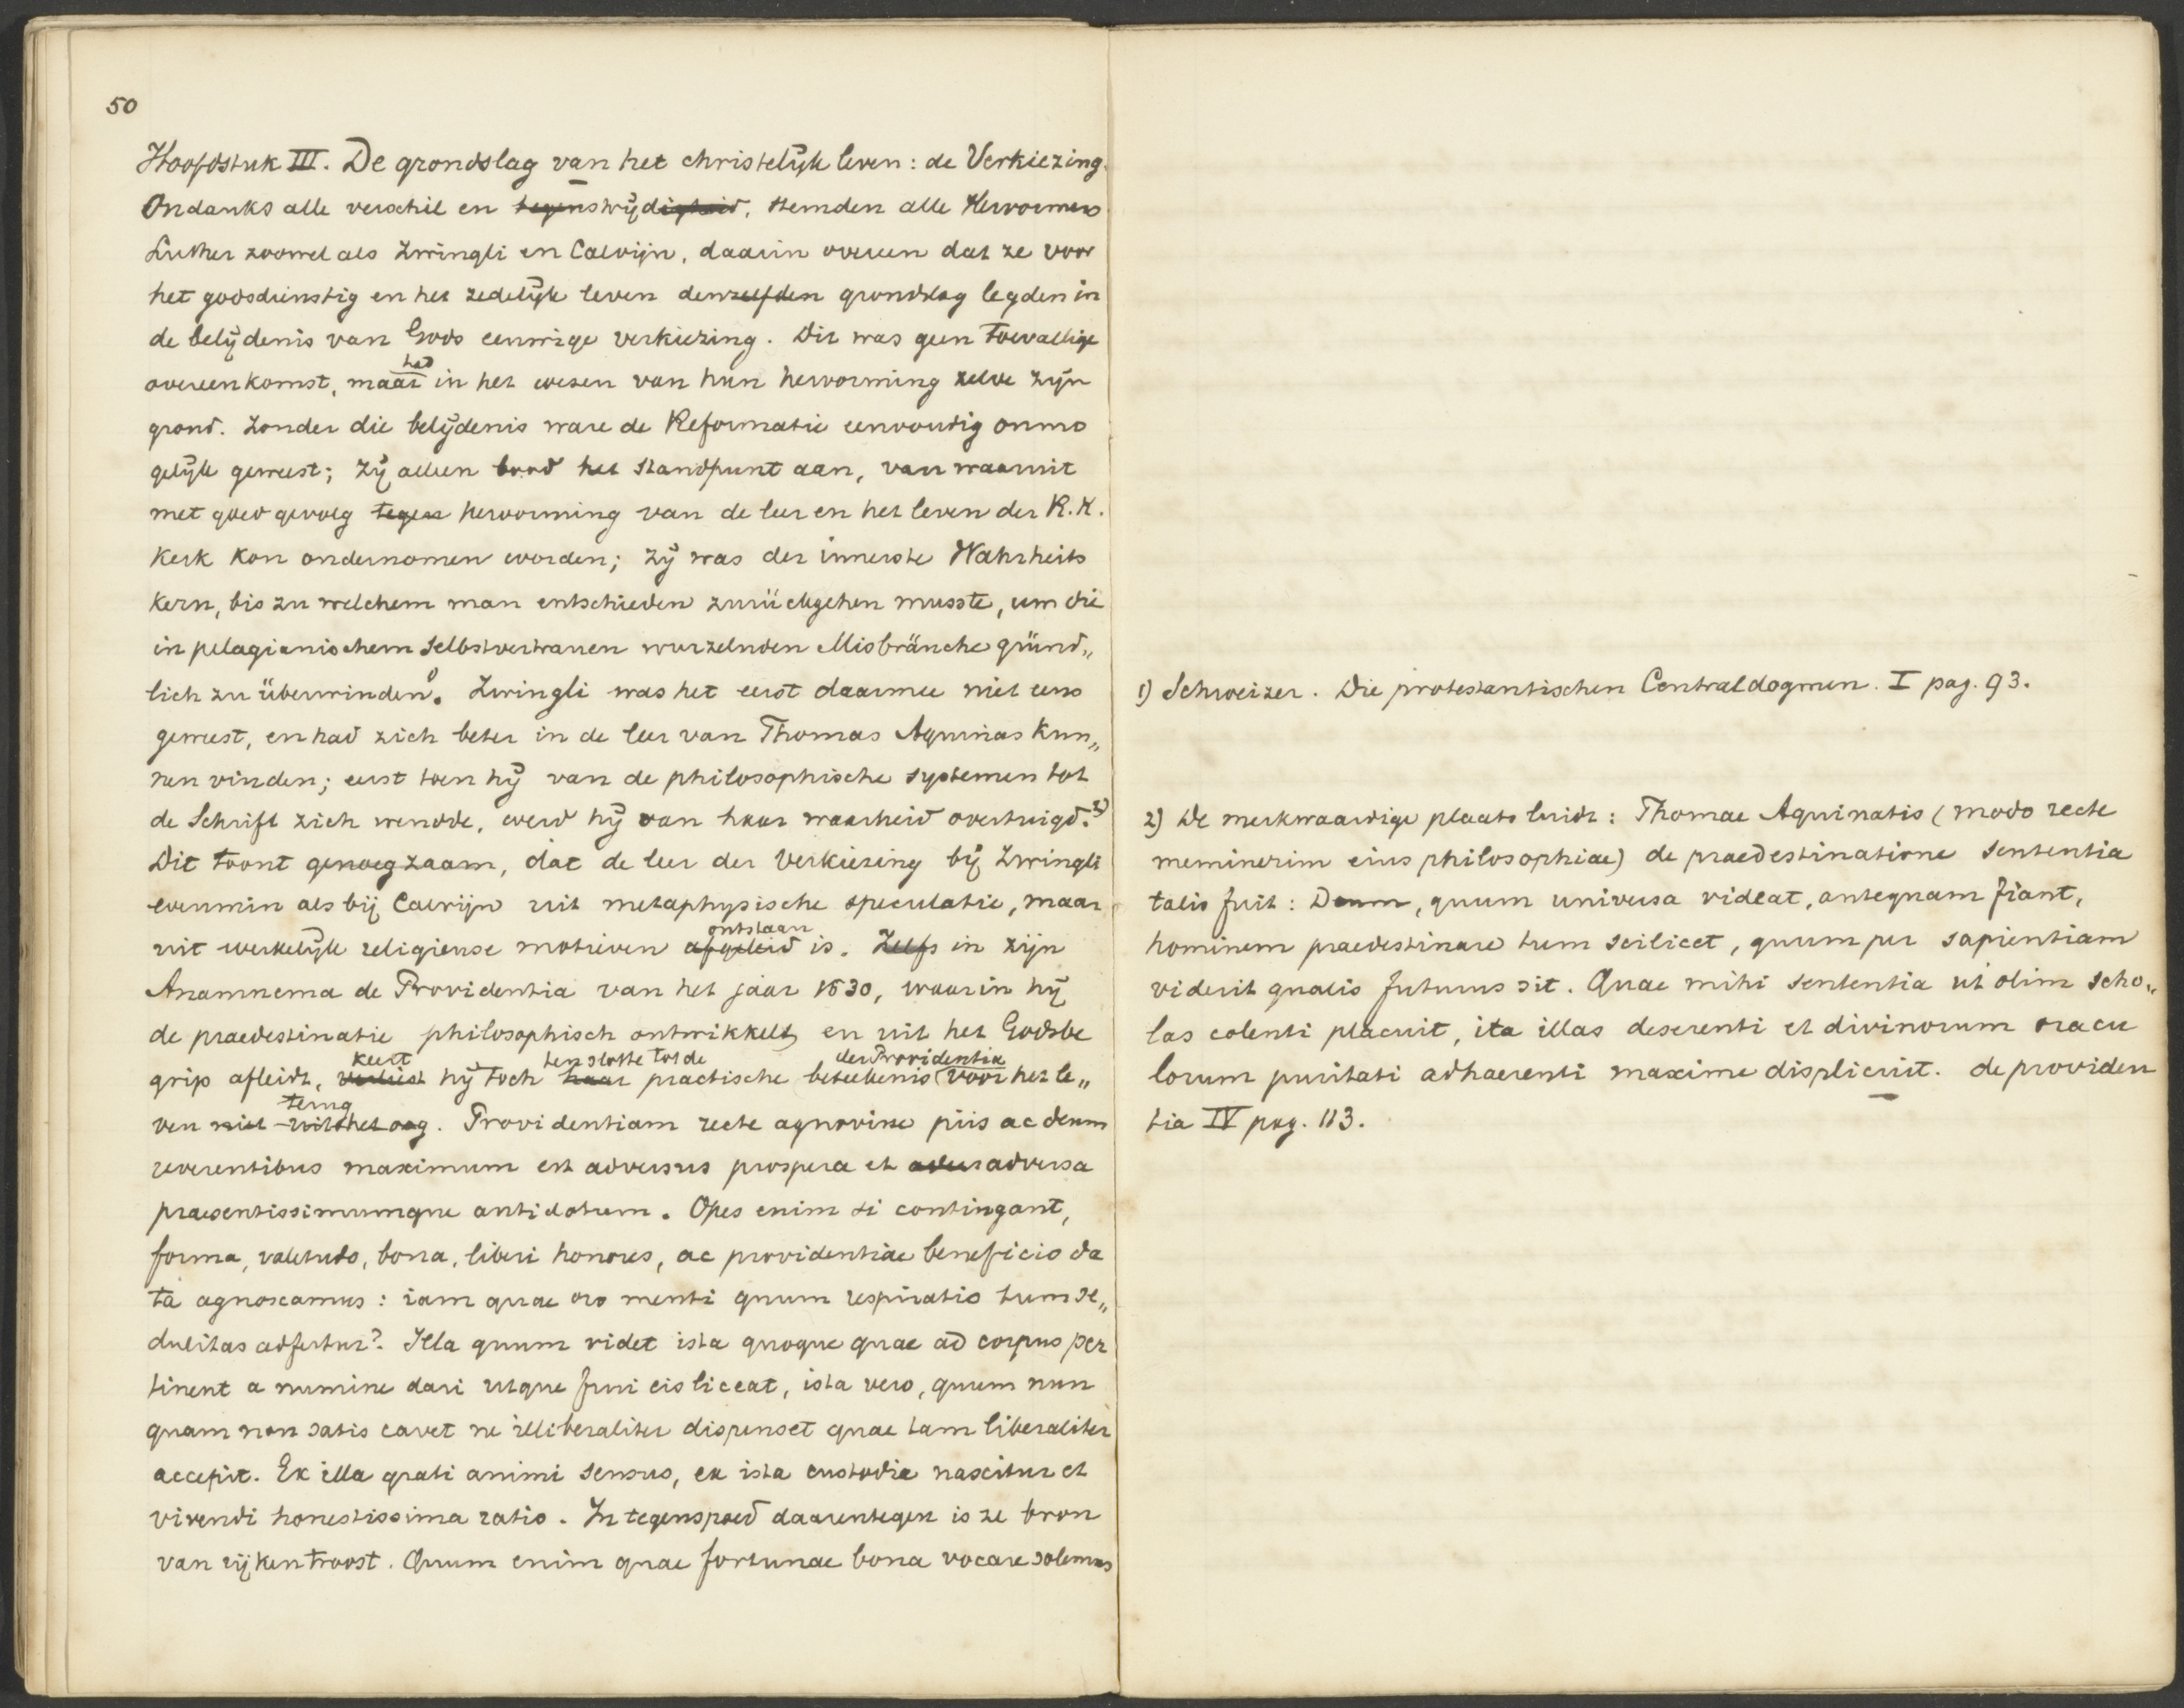 50
Hoofdstuk III. De grondslag van het christelijk leven: de Verkiezing.
Ondanks alle verschil en tegenstrijdigheid, stemden alle Hervormers
Luther zoowel als Zwingli en Calvijn, daarin overeen dat ze voor
het godsdienstig en het zedelijk leven denzelfden grondslag legden in
de belijdenis van Gods eeuwige verkiezing. Dit was geen toevallige
had
overeenkomst, maar in het wezen van hun hervorming zelve zijn
grond. Zonder die belijdenis ware de Reformatie eenvoudig onmo
gelijk geweest; zij alleen bood het standpunt aan, van waaruit
met goed gevolg tegen hervorming van de leer en het leven der R.K.
Kerk kon ondernomen worden; zij was der innerste Wahrheits
kern, bis zu welchem man entschieden zurückgehen musste, um die
in pelagianischem Selbstvertrauen wurzelnden Misbräuche gründ„
lich zu überwinden. Zwingli was het eerst daarmee niet eens
geweest, en had zich beter in de leer van Thomas Aquinas kun„
nen vinden; eerst toen hij van de philosophische systemen tot
de Schrift zich wendde, werd hij van haar waarheid overtuigd. 2)
Dit toont genoegzaam, dat de leer der Verkiezing bij Zwingli
evenmin als bij Calvijn uit metaphysische speculatie, maar
ontstaan
uit werkelijk religieuse motieven afgeleid is. Zelfs in zijn
Anamnema de Providentia van het jaar 1530, waarin hij
de praedestinatie philosophisch ontwikkelt, en uit het Godsbe
keert ten slotte tot de der Providentia
grip afleidt, verliest hij toch haar practische beteekenis voor het le„
terug
ven niet uit het oog. Providentiam recte agnovisse piis ac deum
reverentibus maximum est adversus prospera et adver adversa
praesentissimumque antidotum. Opes enim si contingant,
forma, valetudo, bona, liberi honores, ac providentiae beneficio da
ta agnoscamus: iam quae oro menti quum respiratio tum se„
dulitas adfertur? Illa quum videt ista quoque quae ad corpus per
tinent a numine dari utque frui eis liceat, ista vero, quum nun
quam non satis cavet ne illiberaliter dispenset quae tam liberaliter
accepit. Ex illa grati animi sensus, ex ista custodia nascitur et
vivendi honestissima ratio. In tegenspoed daarentegen is ze bron
van rijken troost. Quum enim quae fortunae bona vocare solemus
1) Schweizer. Die protestantischen Centraldogmen. I pag. 93.
2) De merkwaardige plaats luidt: Thomae Aquinatis (modo recte
meminerim eius philosophiae) de praedestinatione sententia
talis fuit: Deum, quum universa videat, antequam fiant,
hominem praedestinare tum scilicet, quum per sapientiam
viderit qualis futurus sit. Quae mihi sententia ut olim scho„
las colenti placuit, ita illas deserenti et divinorum oracu
lorum puritati adhaerenti maxime displicuit. de providen
tia IV pag. 113.